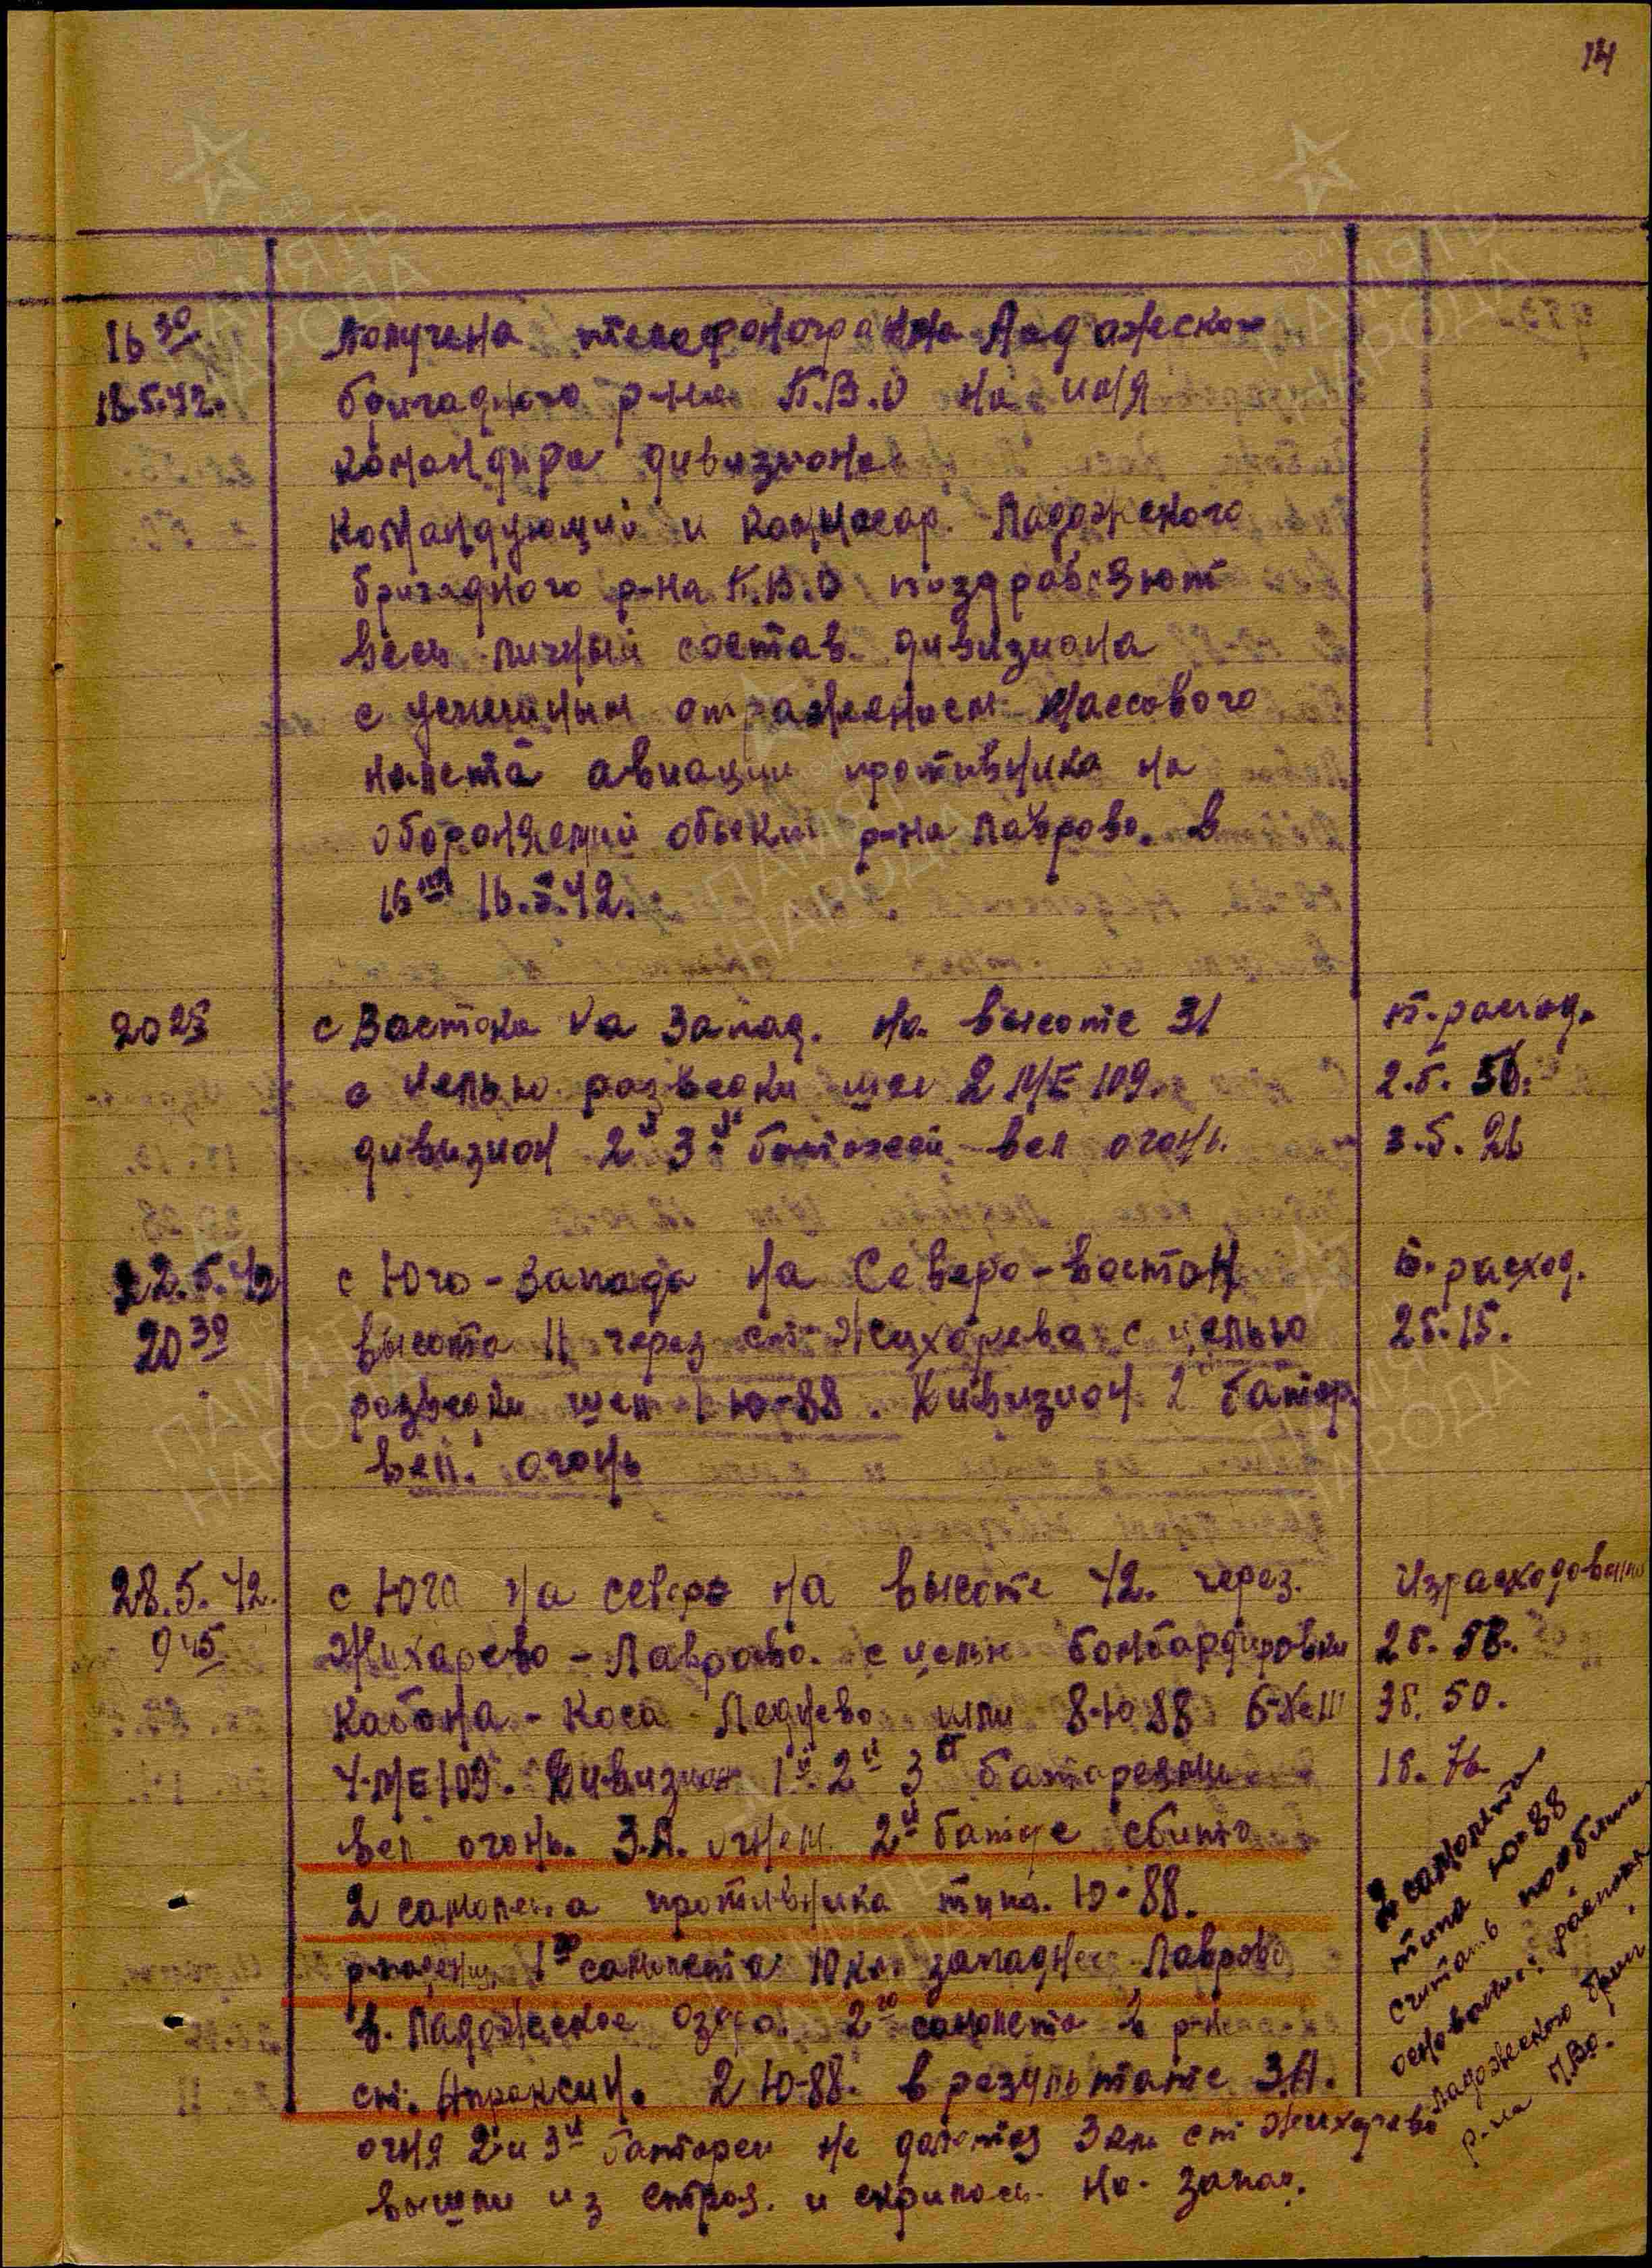 14
16 30
18.5.42.
Получена телефонограмма Ладожского
бригадного р-на П.В.О на имя
командира дивизиона
Командующий и комиссар. Ладожского
бригадного р-на П.В.О поздравляют
весь личный состав дивизиона
с успешным отражением массового
налета авиации противника на
обороняемый объект р-на Лаврово. в
16.5.42.
20 25
с Востока на Запад. на высоте 31
с целью разведки шли 2 МЕ 109.
дивизион 2й 3й батареей вел огонь.
т. расход.
2.б. 50.
3.б. 26
22.5.42
20 30
с Юго-Запада на Северо-восток
высота 11 через ст Жихарева с целью
разведки шел 1 Ю-88. Дивизион 2 батар.
вел. огонь
б. расход.
2б. 15.
28.5.42.
9 45
с Юга на севера на высоте 42. через.
Жихарево - Лаврово. с целью бомбардировки
Кабона - Коса Леднево шли 8-Ю88 6-Хе111
4-МЕ109. Дивизион 1й 2й 3й батареями
вел огонь. З.А. огнем 2й батаре сбито
2 самолета противника типа. Ю-88.
1го самолета 10 км. западнее Лаврово
в. Ладожское озеро. 2го самолета в р-не
ст. Апраксин. 2 Ю-88. в результате З.А.
огня 2й и 3й батареи не долетая 3 км ст Жихарево
вышли из строя. и скрылись на. запад.
Израсходованно
2б. 58.
3б. 50.
1б. 76
2 самолета
типа Ю-88
считать
основание: распоряж
Ладожского бриг
р-на ПВО.
ПАМЯТЬ
НАРОДА